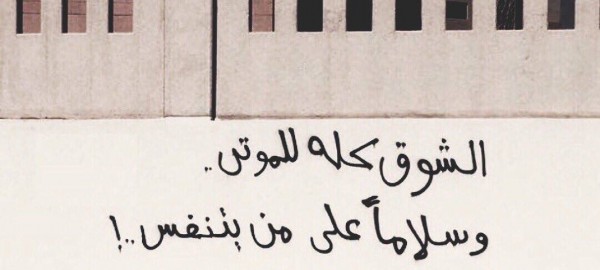 الشوق كله للموتى..
وسلاماً على من يتنفس..!